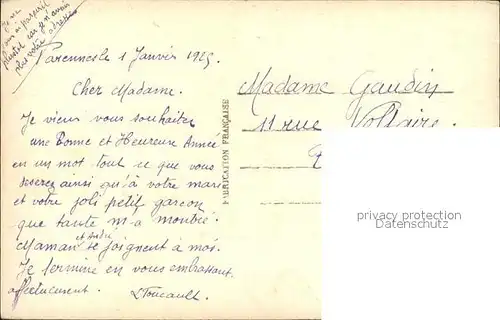 Je ne
vous ai pas écrit
plus tôt car je n'avais
plus votre adresse
Varennes le 1 Janvier 1925
Cher Madame.
Je viens vous souhaiter
une Bonne et Heureuse Année
en un mot tout ce que vous
désirez ainsi qu'à votre mari
et votre joli petit garcon
que tante m'a montré.
Maman et André se joignent à moi.
Je termine en vous embrassant
affectueusement.
LFoucault.
FABRICATION FRANÇAISE
Madame Gaudin
11 rue Voltaire.
privacy protection
Datenschutz